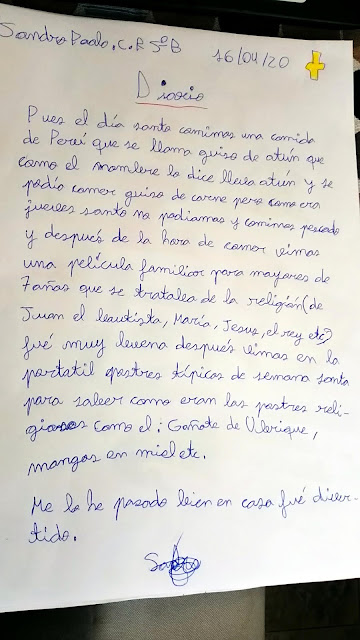 Sandro Paolo.C.R 5ºB
16/04/20
Diario
Pues el día santo comimos una comida
de Perú que se llama guiso de atún que
como el nombre lo dice lleva atún y se
podía comer guiso de carne pero como era
jueves santo no podiamos y comimos pescado
y después de la hora de comer vimos
una película familiar para mayores de
7 años que se trataba de la religión (de
Juan el bautista, María, Jesus, el rey etc)
fué muy buena después vimos en la
portatil postres típicos de semana santa
para saber como eran los postres reli-
giosos como el: Gañote de Ubrique,
mangos en miel etc.
Me lo he pasado bien en casa fué diver-
tido.